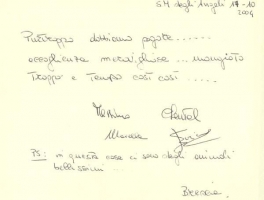 S.M. degli Angeli 17-10
2004
Purtroppo dobbiamo pagare......
accoglienza meravigliosa... mangiato
troppo e tempo così così.....
Massimo
PS: in questa casa ci sono degli animali
bellissimi...